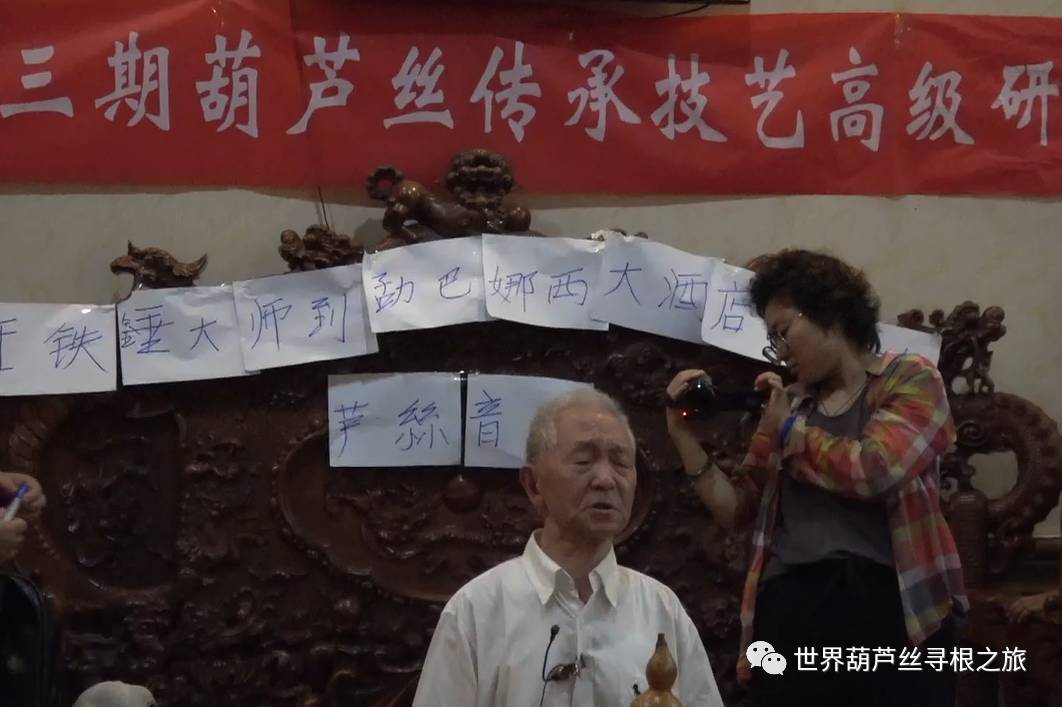 三期葫芦丝传承技艺高级研
铁锤大师到勐巴娜西大酒店
芦絲音
世界葫芦丝寻根之旅